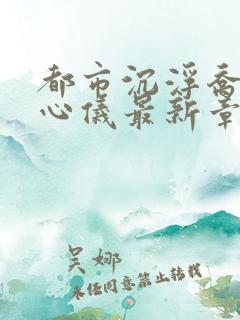 都市沉浮乔
心仪最新章
吴娜
未经同意禁止转载